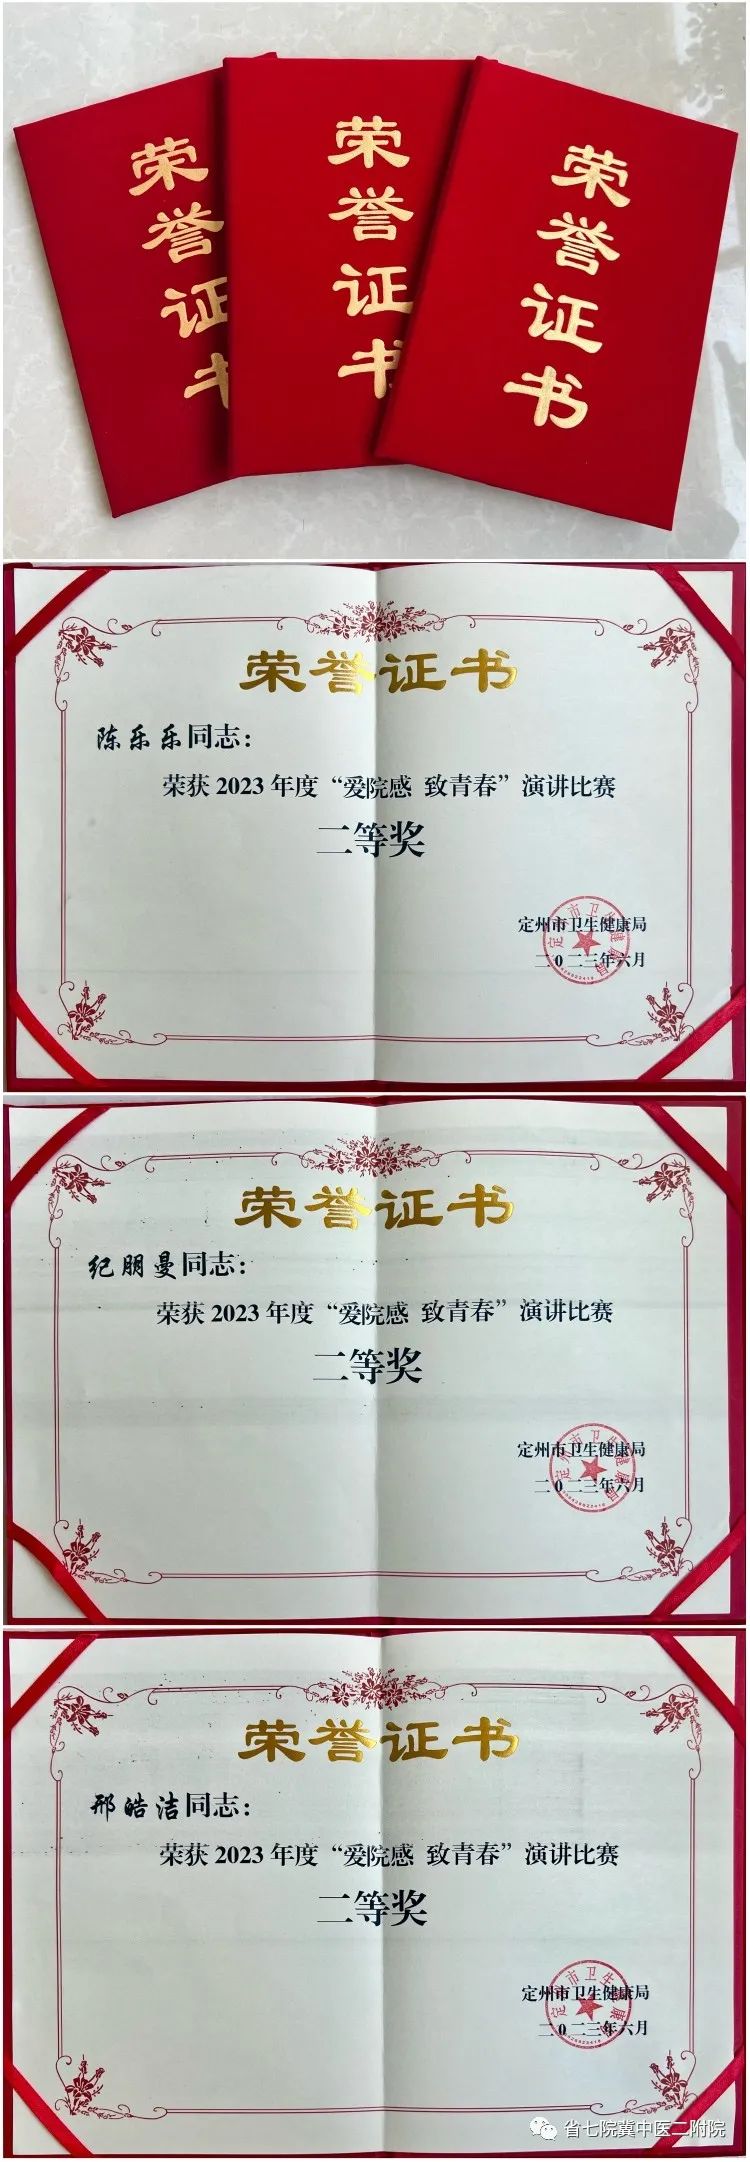 荣誉证书
荣誉证书
荣誉证书
荣誉证书
陈乐乐同志：
荣获2023年度“爱院感 致青春”演讲比赛
二等奖
定州市卫生健康局
二0二三年六月
定州市卫生健康局
荣誉证书
纪朋曼同志：
荣获2023年度“爱院感 致青春”演讲比赛
二等奖
定州市卫生健康局
二0二三年六月
定州市卫生健康局
荣誉证书
邢皓洁同志：
荣获2023年度“爱院感 致青春”演讲比赛
二等奖
定州市卫生健康局
二0二三年六月
定州市卫生健康局
省七院冀中医二附院